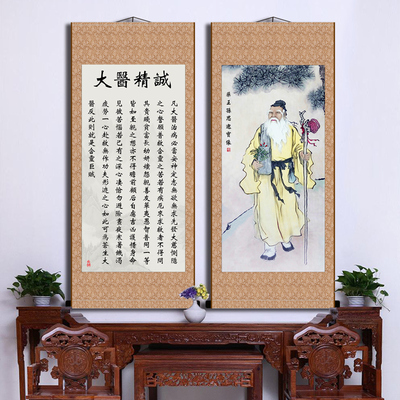 大醫精誠
凡大醫治病必當安神定志無欲無求先發大慈惻隱
之心誓願普救含靈之苦若有疾厄來求救者不得問
其貴賤貧富長幼妍媸怨親善友華夷愚智普同一等
皆如至親之想亦不得瞻前顧後自慮吉凶護惜身命
見彼苦惱若己有之深心悽愴勿避險巇晝夜寒暑飢渴
疲勞一心赴救無作功夫形迹之心如此可為蒼生大
醫反此則是含靈巨賊
藥王孫思邈寶像